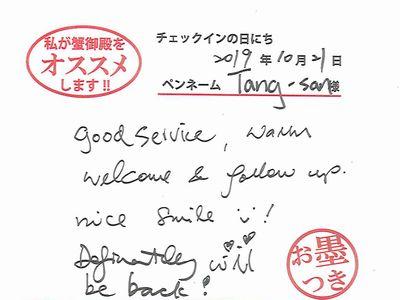 私が蟹御殿を
オススメ
します!!
チェックインの日にち
2019年10月21日
ペンネーム Tang-san様
good service, warm
welcome & follow up.
nice smile !
Definately will
be back!
お墨
つき